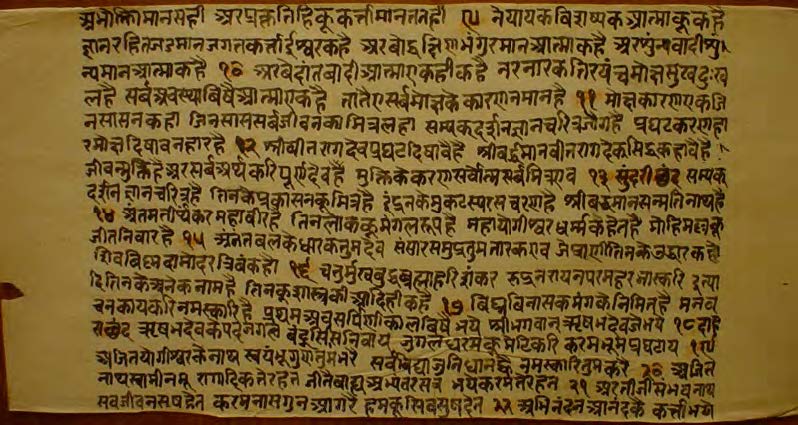 अभोक्तिमानसही अर प्रकृतिहि कू कर्त्ता मानततही ९ नैयायक विशष्यक आत्मा कू कहै
ज्ञानरहित जडमान जगतकर्त्ता ईश्वर कहै अर बौद्ध क्षिणभंगुर मान आत्मा कहै अर शुंन्यवादी शुं
न्यमान आत्मा कहै १० अर बेदांतबादी आत्मा एकही कहै नर नारक तिरयंच मोक्ष सुख दुःख
लहै सर्ब अवस्था बिषै आत्मा एक है तातै ए सर्ब मोक्ष के कारण न मान है ११ मोक्षकारण एक जि
नसासन कहा जिनसास सर्ब जीवन का मित्र लहा सम्यक दर्शन ज्ञान चरित्र जौग है प्रघट करणहा
र मोक्ष दिषावनहार है १२ श्री बीतरागदेव प्रघट दिषावै है श्री बर्द्धमान बीतरागदेव कू सिद्ध कहावै है
जीवन्मुक्ति है अर सर्ब अर्थ करि पूर्ण देव है मुक्ति के करण सर्बोत्म सर्ब मित्र एव १३ सम्यक
दर्शन ज्ञान चरित्र है तिनके प्रकासन कू मित्र है इंद्रन के मुकट स्परस चरण है श्री बर्द्धमान सन्मति नाथ है
१४ अंतम तीर्थंकर महाबीर है तिन लोक कू मंगल रूप है महा योगीश्वर धर्म्म के हेत है मोह मल कू
जीतनिवार है १५ अनंत बल के धारक तुम देव संसार समुद्र तुम तारक एव जे प्राणी तिनके उद्धार क है
शिव बिष्णु दामोदर त्रिबंक हो १६ चतुर्मुख बुद्ध ब्रह्मा हरि शंकर रुद्र नरायन परमहर भास्करि इत्या
दि तिनके अनेक नाम है तिन कू शास्त्र की आदि ही कहै १७ बिघ्न बिनासक मंगल के निमित है मन व
चन काय करि नमस्कारि है प्रथम अवसर्पिणी काल बिषै भये श्री भगवान ऋषभदेव जे भये १८ दोहा
छंद ऋषभदेव के पद नगल बंदु सिस निवाय जुगल धरम कू मेटि करि करम भूम प्रघटाय १९
अजित योगीश्वर कै नाथ स्वयंभू गुरु तुम भये सर्ब बिद्या जु निधान है नमस्कारि तुम करै २० अजित
नाथ स्वामी नमू रागादिक ते रहत जीते बाह्य अभ्यंतर सब भय करमते रहत २१ अर तीजी संभव नाथ
सब जीवन सुष देत करम नास गुन आगरै हम कू सिब सुष देत २२ अभिनंदन आनंद कै कर्त्ता भया